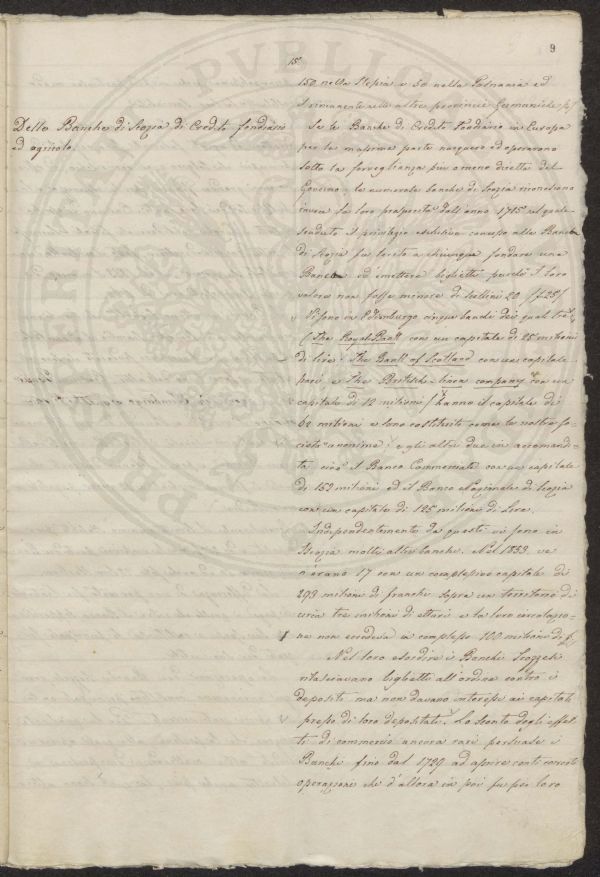 9
15
Delle Banche di Scozia di Credito fondiario
ed agricolo.
150 nella Slesia e 50 nella Posnania ed
il rimanente nelle altre provincie Germaniche
Se le Banche di Credito Fondiario in Europa
per la massima parte nacquero ed operarono
sotto la sorveglianza più o meno diretta del
Governo, le numerose banche di Scozia riconoscono
invece la loro prosperità dall'anno 1715 nel quale
scaduto il privilegio esclusivo concesso alla Banca
di Scozia fu lecito a chiunque fondare una
Banca ed emettere biglietti purchè il loro
valore non fosse minore di scellini 20 /£25/
Vi sono in Edimburgo cinque banche dei quali tre
(The Royal Bank con un capitale di 25 milioni
di lire: The Bank of Scotland con un capitale
pari e The Britisch-linen company con un
capitale di 12 milioni) hanno il capitale di
62 milioni e sono costituite come le nostre so-
cietà anonime: e gli altri due in accomandi-
ta cioè il Banco Commerciale con un capitale
di 152 milioni ed il Banco Nazionale di Scozia
con un capitale di 125 milioni di Lire.
Independentemente da questi vi sono in
Scozia molte altre banche. Nel 1853 ve
n'erano 17 con un complessivo capitale di
293 milioni di franchi sopra un territorio di
circa tre milioni di ettari e la loro circolazio-
ne non eccedeva in complesso 100 milioni di f.
Nel loro esordire i Banchi Scozzesi
rilasciavano biglietti all'ordine contro i
depositi ma non davano interessi ai capitali
presso di loro depositati. Lo sconto degli effet-
ti di commercio ancora rari persuase i
Banchi fino dal 1729 ad aprire conti correnti
operazioni che d'allora in poi fu per loro